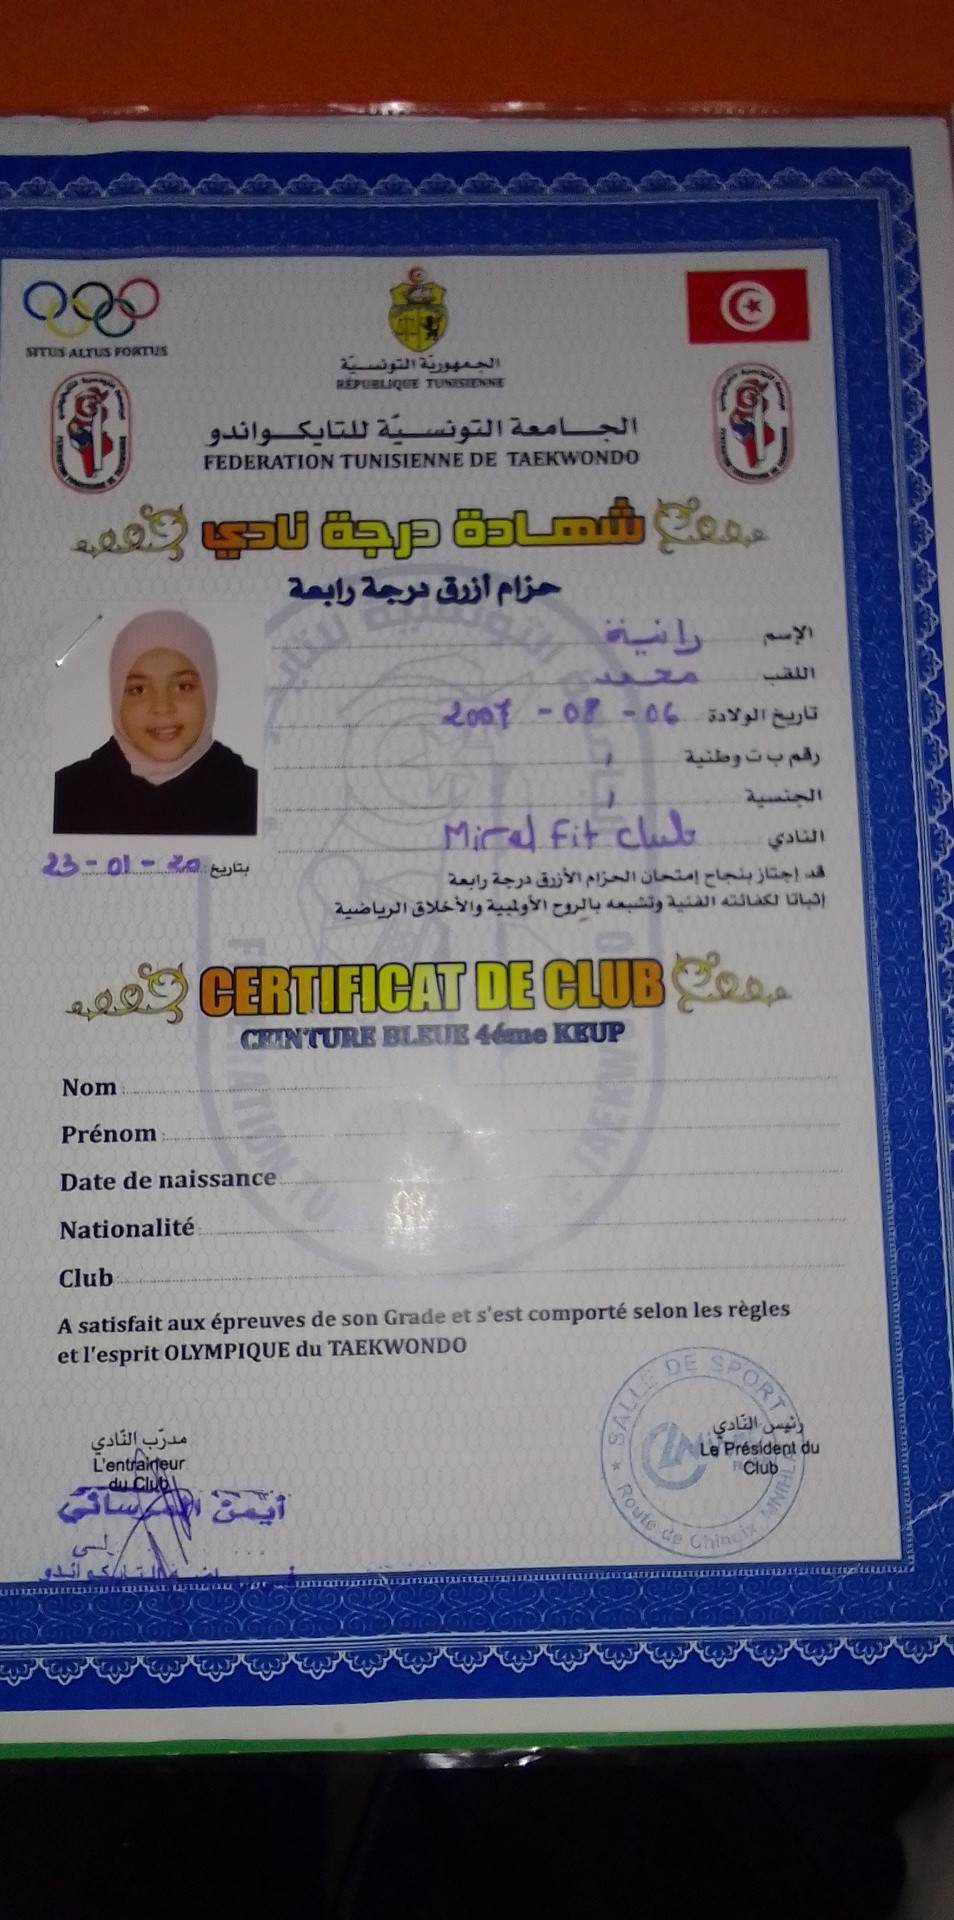 SITUS ALTUS FORTUS
الجمهوريّة التونسيّة
RÉPUBLIQUE TUNISIENNE
الجامعة التونسيّة للتايكواندو
FEDERATION TUNISIENNE DE TAEKWONDO
شهادة درجة نادي
حزام أزرق درجة رابعة
الإسم رانية
اللقب محمد
تاريخ الولادة 06 - 08 - 2007
رقم ب ت وطنية
الجنسية
النادي Miral Fit Club
بتاريخ 23 - 01 - 20
قد إجتاز بنجاح إمتحان الحزام الأزرق درجة رابعة
إثباتا لكفائته الفنية وتشبعه بالروح الأولمبية والأخلاق الرياضية
CERTIFICAT DE CLUB
CEINTURE BLEUE 4éme KEUP
Nom
Prénom
Date de naissance
Nationalité
Club
A satisfait aux épreuves de son Grade et s'est comporté selon les règles
et l'esprit OLYMPIQUE du TAEKWONDO
مدرّب النّادي
L'entraineur
du Club
أيمن
رئيس النّادي
Le Président du
Club
SALLE DE SPORT
Route de
MNIHLA